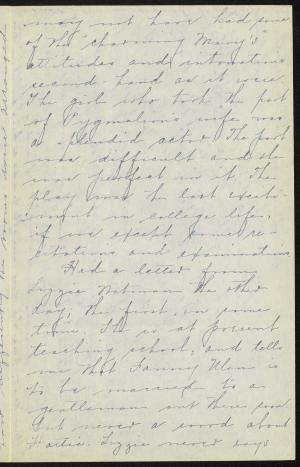 may not have had some
of the "charming Mary's"
attitudes and intonations
second-hand as it were.
The girl who took the part
of Pygmalion's wife was
a splendid actor. The part
was difficult and she
was perfect in it. The
play was the last excite-
ment in college life,
if we except some re-
citations and examinations.
Had a letter from
Lizzie the other
day, the first, in some
time. She is at present
teaching school, and tells
me that Fanny is
to be married to a
gentleman out there soon.
But never a word about
Hattie. Lizzie never says